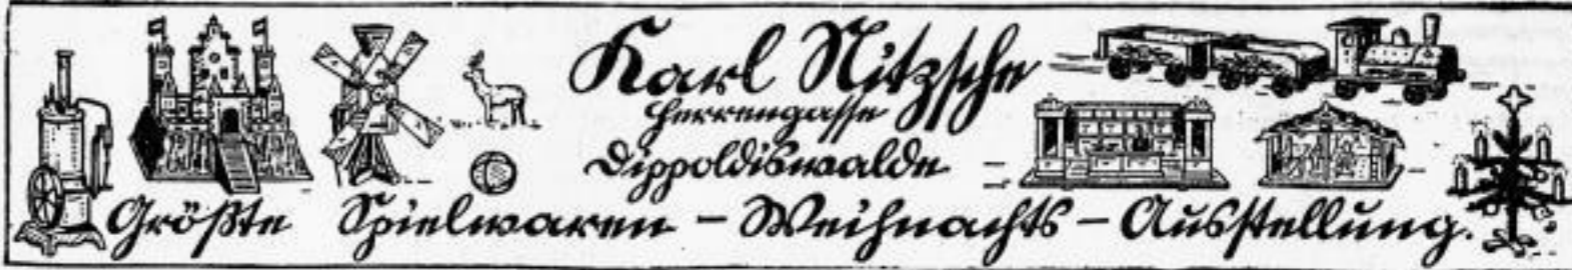 Karl Nitzsche
Herrengasse
Dippoldiswalde
Größte Spielwaren - Weihnachts - Ausstellung.